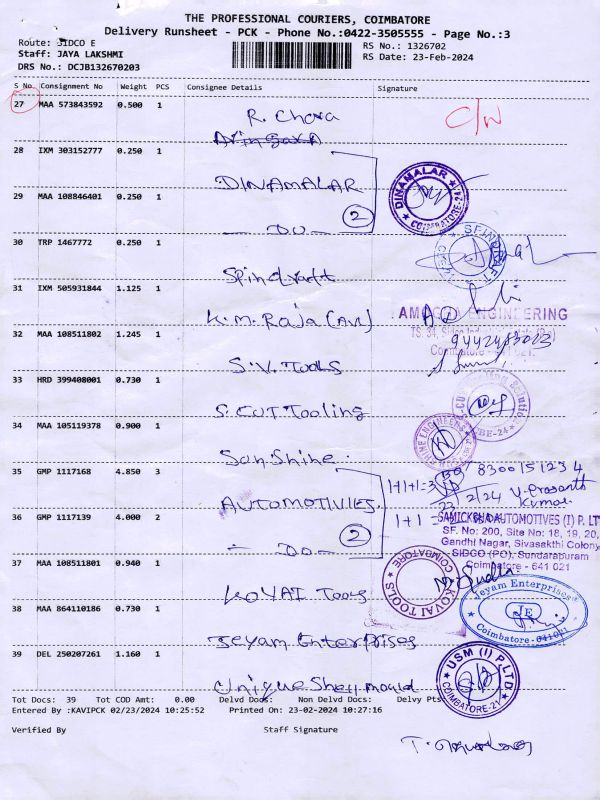 THE PROFESSIONAL COURIERS, COIMBATORE
Delivery Runsheet - PCK - Phone No.:0422-3505555 - Page No.:3
Route: JIDCO E
RS No.: 1326702
Staff: JAYA LAKSHMI
RS Date: 23-Feb-2024
DRS No.: DCJB132670203
S No. Consignment No Weight PCS Consignee Details Signature
27 MAA 573843592 0.500 1
R. Chora
C/N
28 IXM 303152777 0.250 1
DINAMALAR
DINAMALAR
COIMBATORE-24
29 MAA 108846401 0.250 1
- DO -
2
30 TRP 1467772 0.250 1
31 IXM 505931844 1.125 1
K.M. Raja (AVL)
ENGINEERING
9442483023
32 MAA 108511802 1.245 1
S.V. TOOLS
33 HRD 399408001 0.730 1
S. CUT Tooling
34 MAA 105119378 0.900 1
Sun Shine
35 GMP 1117168 4.850 3
1+1+1=3
8300151234
AUTOMOTIVIES
2/24 V. Prasanth Kumar
36 GMP 1117139 4.000 2
- DO -
2
1+1 =
AUTOMOTIVES (I) P. LTD
SF. No: 200, Site No: 18, 19, 20,
Gandhi Nagar, Sivasakthi Colony
SIDCO (PO), Sundarapuram
Coimbatore - 641 021
37 MAA 108511801 0.940 1
KOVAI Tools
KOVAI TOOLS
COIMBATORE
38 MAA 864110186 0.730 1
Jeyam Enterprises
Jeyam Enterprises
JE
Coimbatore-641021
39 DEL 250207261 1.160 1
Unique Shell mould
USM (I) P.LTD
COIMBATORE-21
Tot Docs: 39 Tot COD Amt: 0.00 Delvd Docs: Non Delvd Docs: Delvy Pts:
Entered By :KAVIPCK 02/23/2024 10:25:52 Printed On: 23-02-2024 10:27:16
Verified By Staff Signature